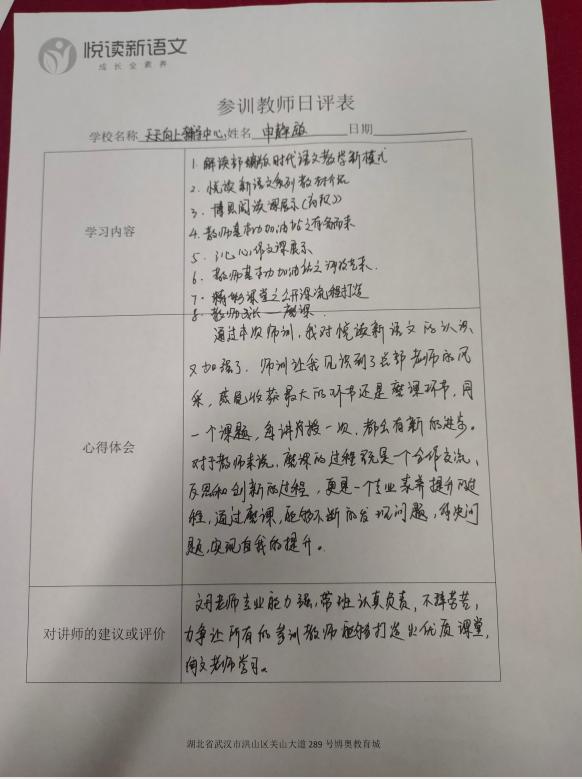 悦读新语文
成长全素养
参训教师日评表
学校名称 天天向上辅导中心 姓名 申静 日期
学习内容
1. 解读部编版时代语文教学新模式
2. 悦读新语文系列教材介绍
3. 博思阅读课展示
4. 教师基本功加油站之有备而来
5. 心作文课展示
6. 教师基本功加油站之
7. 精彩课堂之公开课流程打造
8. 教师成长——磨课
心得体会
通过本次师训，我对悦读新语文的认识
又加强了。师训让我见识到了总部老师的风
采，感觉收获最大的环节还是磨课环节，同
一个课题，每讲授一次，都会有新的进步。
对于教师来说，磨课的过程就是一个合作交流、
反思和创新的过程，更是一个专业素养提升的过
程，通过磨课，能够不断的发现问题，解决问
题，实现自我的提升。
对讲师的建议或评价
文老师专业能力强，带班认真负责，不辞劳苦，
力争让所有的参训教师能够打造出优质课堂，
向文老师学习。
湖北省武汉市洪山区关山大道 289 号博奥教育城